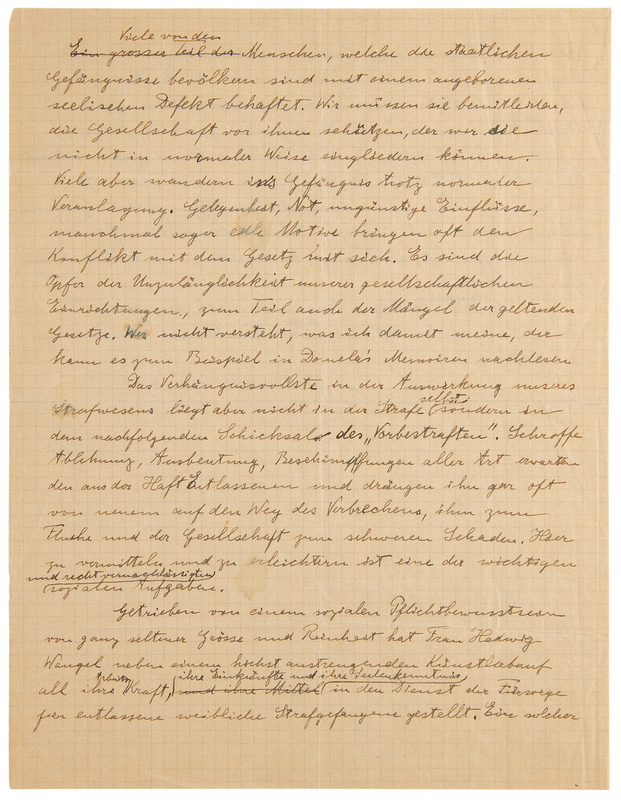 Viele von den
Ein grosser Teil der Menschen, welche die staatlichen
Gefängnisse bevölkern sind mit einem angeborenen
seelischen Defekt behaftet. Wir müssen sie bemitleiden,
die Gesellschaft vor ihnen schützen, der wir sie
nicht in normaler Weise eingliedern können.
Viele aber wandern ins Gefängnis trotz normaler
Veranlagung. Gelegenheit, Not, ungünstige Einflüsse,
manchmal sogar edle Motive bringen oft den
Konflikt mit dem Gesetz mit sich. Es sind die
Opfer der Unzulänglichkeit unserer gesellschaftlichen
Einrichtungen, zum Teil auch der Mängel der geltenden
Gesetze. Wer nicht versteht, was ich damit meine, der
kann es zum Beispiel in Domela's Memoiren nachlesen
Das Verhängnisvollste in der Auswirkung unseres
selbst
Strafwesens liegt aber nicht in der Strafe sondern in
dem nachfolgenden Schicksal des „Vorbestraften". Schroffe
Ablehnung, Ausbeutung, Beschimpfungen aller Art erwarten
den aus der Haft Entlassenen und drängen ihn gar oft
von neuem auf den Weg des Verbrechens, ihm zum
Fluche und der Gesellschaft zum schweren Schaden. Hier
zu vermitteln und zu erleichtern ist eine der wichtigen
und recht vernachlässigten
sozialen Aufgaben.
Getrieben von einem sozialen Pflichtbewusstsein
von ganz seltener Grösse und Reinheit hat Frau Hedwig
Wangel neben einem höchst anstrengenden Künstlerberuf
ihre Einkünfte und ihre Seelenkenntnis
all ihre Kraft, und ihre Mittel in den Dienst der Fürsorge
für entlassene weibliche Strafgefangene gestellt. Ein solcher